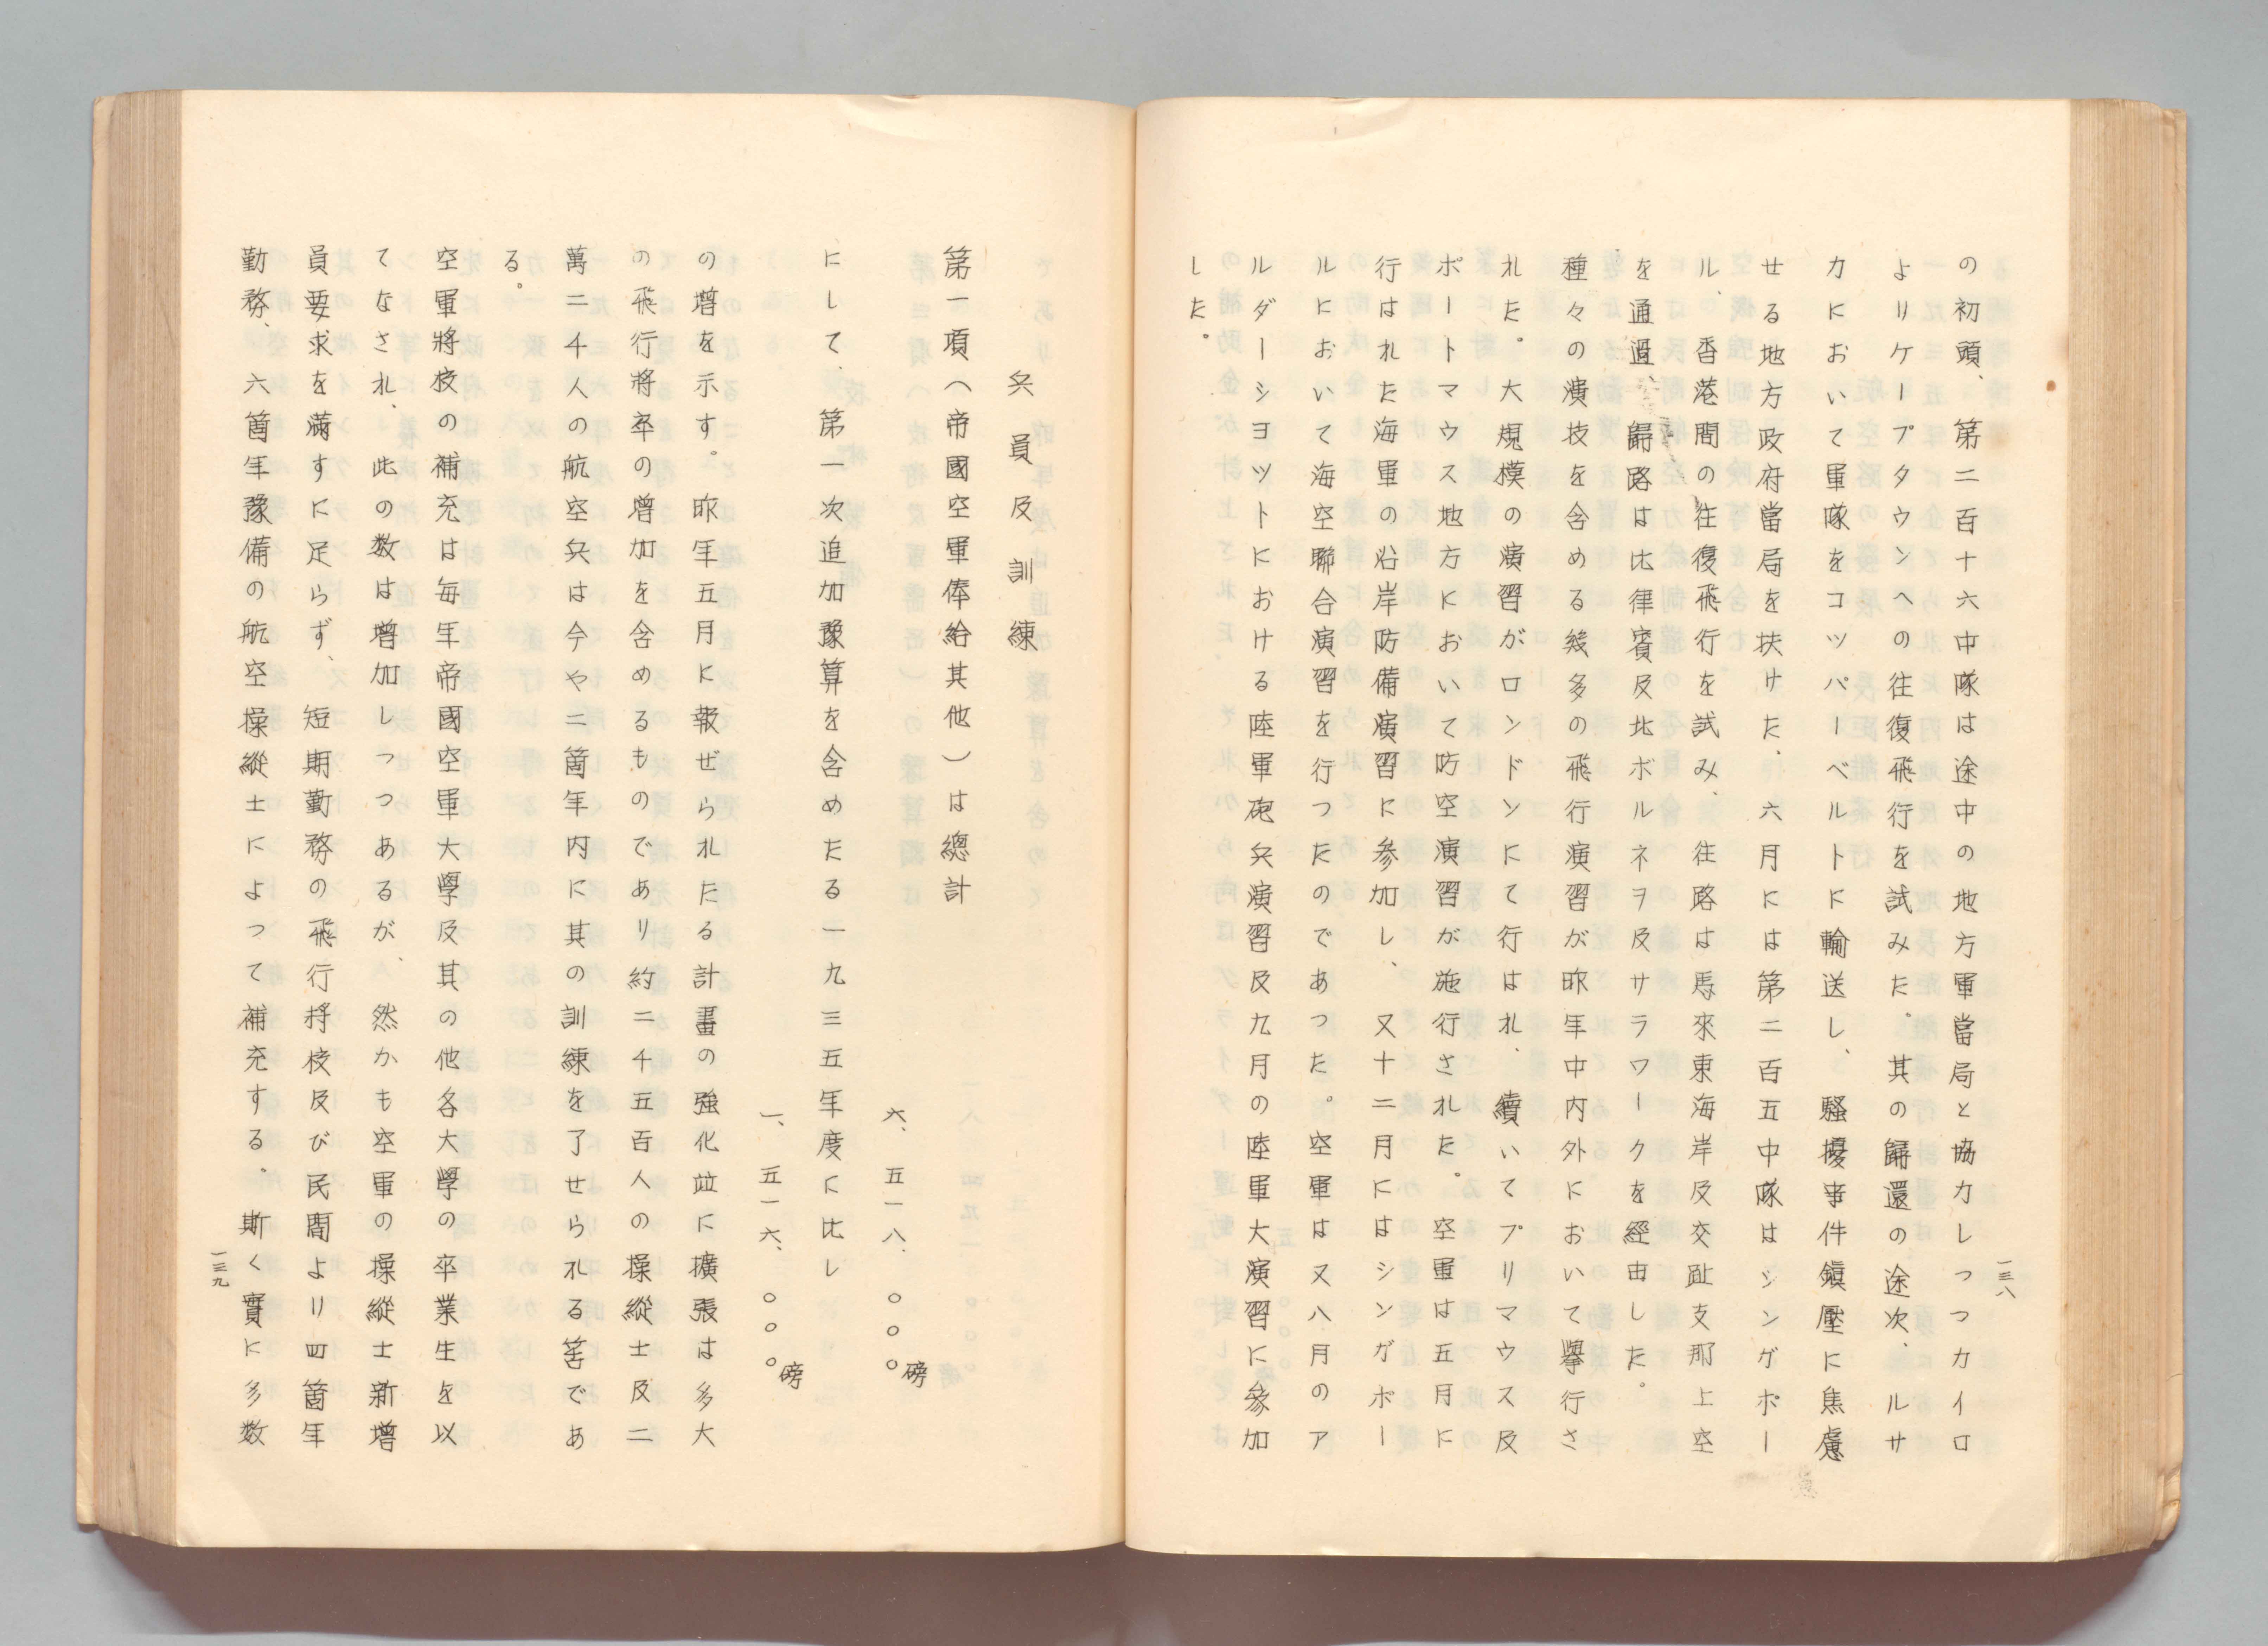 一三八
の初頭、第二百十六中隊は途中の地方軍當局と協力しつつカイロ
よりケープタウンへの往復飛行を試みた。其の歸還の途次、ルサ
カにおいて軍隊をコツパーベルトに輸送し、騷擾事件鎭壓に焦慮
せる地方政府當局を扶けた、六月には第二百五中隊はシンガポー
ル、香港間の往復飛行を試み、往路は馬來東海岸及交趾支那上空
を通過、歸路は比律賓及北ボルネヲ及サラワークを經由した。
種々の演技を含める幾多の飛行演習が昨年中内外において擧行さ
れた。大規模の演習がロンドンにて行はれ、續いてプリマウス及
ポートマウス地方において防空演習が施行された。空軍は五月に
行はれた海軍の沿岸防備演習に参加し、又十二月にはシンガポー
ルにおいて海空聯合演習を行つたのであつた。空軍は又八月のア
ルダーシヨツトにおける陸軍砲兵演習及九月の陸軍大演習に參加
した。
兵員及訓練
第一項（帝國空軍俸給其他）は總計
六、五一八、〇〇〇磅
にして、第一次追加豫算を含めたる一九三五年度に比し
一、五一六、〇〇〇磅
の增を示す。昨年五月に報ぜられたる計畫の強化竝に擴張は多大
の飛行將卒の增加を含めるものであり約二千五百人の操縱士及二
萬二千人の航空兵は今や二箇年内に其の訓練を了せられる筈であ
る。
空軍將校の補充は毎年帝國空軍大學及其の他各大學の卒業生を以
てなされ、此の数は增加しつつあるが、然かも空軍の操縱士新增
員要求を滿すに足らず、短期勤務の飛行将校及び民間より四箇年
勤務、六箇年豫備の航空操縱士によつて補充する、斯く實に多数
一三九